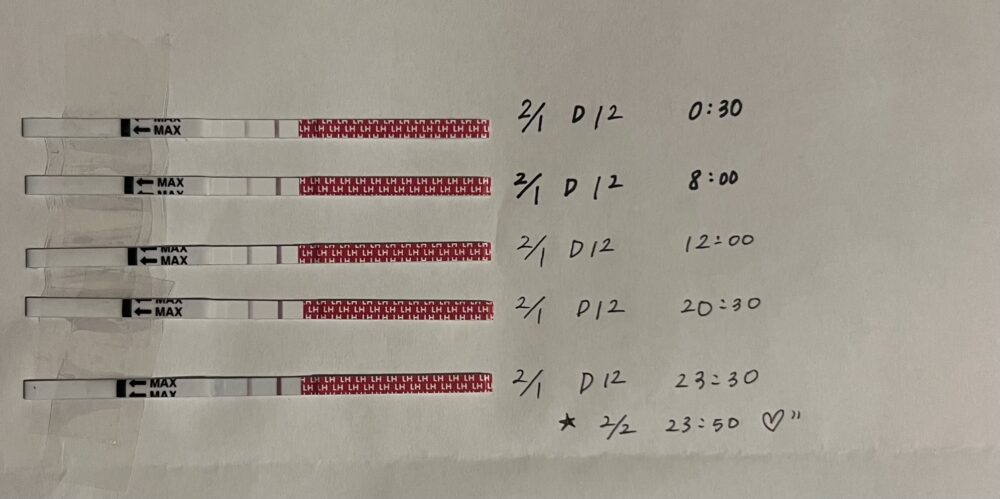 MAX
← MAX LH LH LH LH LH LH LH LH LH LH LH LH 2/1 D12 0:30
← MAX LH LH LH LH LH LH LH LH LH LH LH LH 2/1 D12 8:00
MAX
← MAX LH LH LH LH LH LH LH LH LH LH LH LH 2/1 D12 12:00
MAX
← MAX LH LH LH LH LH LH LH LH LH LH LH LH 2/1 D12 20:30
← MAX LH LH LH LH LH LH LH LH LH LH LH LH 2/1 D12 23:30
← MAX
★ 2/2 23:50 ♡"